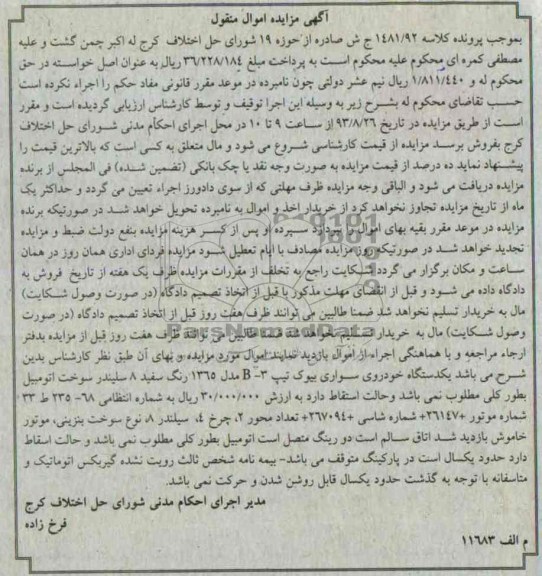 آگهی مزایده اموال منقول
بموجب پرونده کلاسه ۱۴۸۱/۹۲ ج ش صادره از حوزه ۱۹ شورای حل اختلاف کرج له اکبر چمن گشت و علیه
مصطفی کمره ای محکوم علیه محکوم است به پرداخت مبلغ ۳۶/۲۲۸/۱۸۴ ریال به عنوان اصل خواسته در حق
محکوم له و ۱/۸۱۱/۴۴۰ ریال نیم عشر دولتی چون نامبرده در موعد مقرر قانونی مفاد حکم را اجراء نکرده است
حسب تقاضای محکوم له بشرح زیر به وسیله این اجرا توقیف و توسط کارشناس ارزیابی گردیده است و مقرر
است از طریق مزایده در تاریخ ۹۳/۸/۲۶ از ساعت ۹ تا ۱۰ در محل اجرای احکام مدنی شورای حل اختلاف
کرج بفروش برسد مزایده از قیمت کارشناسی شروع می شود و مال متعلق به کسی است که بالاترین قیمت را
پیشنهاد نماید ده درصد از قیمت مزایده به صورت وجه نقد یا چک بانکی (تضمین شده) فی المجلس از برنده
مزایده دریافت می شود و الباقی وجه مزایده ظرف مهلتی که از سوی دادورز اجراء تعیین می گردد و حداکثر یک
ماه از تاریخ مزایده تجاوز نخواهد کرد از خریدار اخذ و اموال به نامبرده تحویل خواهد شد در صورتیکه برنده
مزایده در موعد مقرر بقیه بهای اموال را نپردازد سپرده او پس از کسر هزینه مزایده بنفع دولت ضبط و مزایده
تجدید خواهد شد در صورتیکه روز مزایده مصادف با ایام تعطیل شود مزایده فردای اداری همان روز در همان
ساعت و مکان برگزار می گردد شکایت راجع به تخلف از مقررات مزایده ظرف یک هفته از تاریخ فروش به
دادگاه داده می شود و قبل از انقضای مهلت مذکور یا قبل از اتخاذ تصمیم دادگاه (در صورت وصول شکایت)
مال به خریدار تسلیم نخواهد شد ضمنا طالبین می توانند ظرف هفت روز قبل از اتخاذ تصمیم دادگاه (در صورت
وصول شکایت) مال به خریدار تسلیم نخواهد شد ضمنا طالبین می توانند ظرف هفت روز قبل از مزایده بدفتر
ارجاء مراجعه و با هماهنگی اجراء از اموال بازدید نمایند اموال مورد مزایده و بهای آن طبق نظر کارشناس بدین
شرح می باشد یکدستگاه خودروی سواری بیوک تیپ B-۳ مدل ۱۳۶۵ رنگ سفید ۸ سلیندر سوخت اتومبیل
بطور کلی مطلوب نمی باشد وحالت اسقاط دارد به ارزش ۳۰/۰۰۰/۰۰۰ ریال به شماره انتظامی ۶۸- ۲۳۵ ط ۳۳
شماره موتور ۲۶۱۴۷۰ شماره شاسی ۲۶۷۰۹۴۰ تعداد محور ۲، چرخ ۴، سیلندر ۸، نوع سوخت بنزینی، موتور
خاموش بازدید شد اتاق سالم است دو رینگ متصل است اتومبیل بطور کلی مطلوب نمی باشد و حالت اسقاط
دارد حدود یکسال است در پارکینگ متوقف می باشد- بیمه نامه شخص ثالث رویت نشده گیربکس اتوماتیک و
متاسفانه با توجه به گذشت حدود یکسال قابل روشن شدن و حرکت نمی باشد.
مدیر اجرای احکام مدنی شورای حل اختلاف کرج
فرخ زاده
م الف ۱۱۶۸۳
ParsNamadData